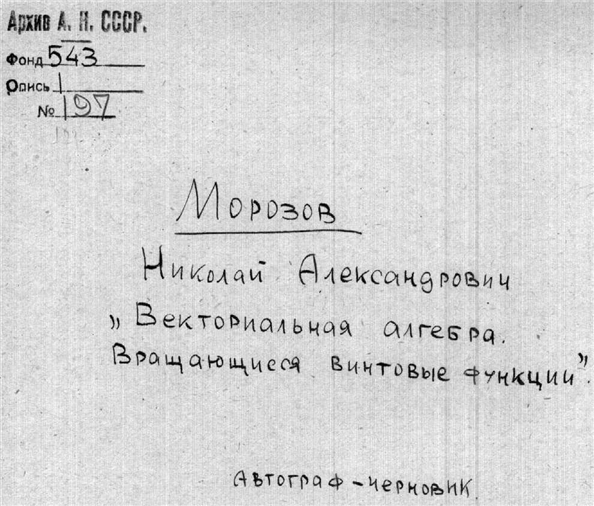 Архив А. Н. СССР.
Фонд 543
Опись 1
№ 197
Морозов
Николай Александрович
„Векториальная алгебра.
Вращающиеся винтовые функции”.
Автограф-черновик